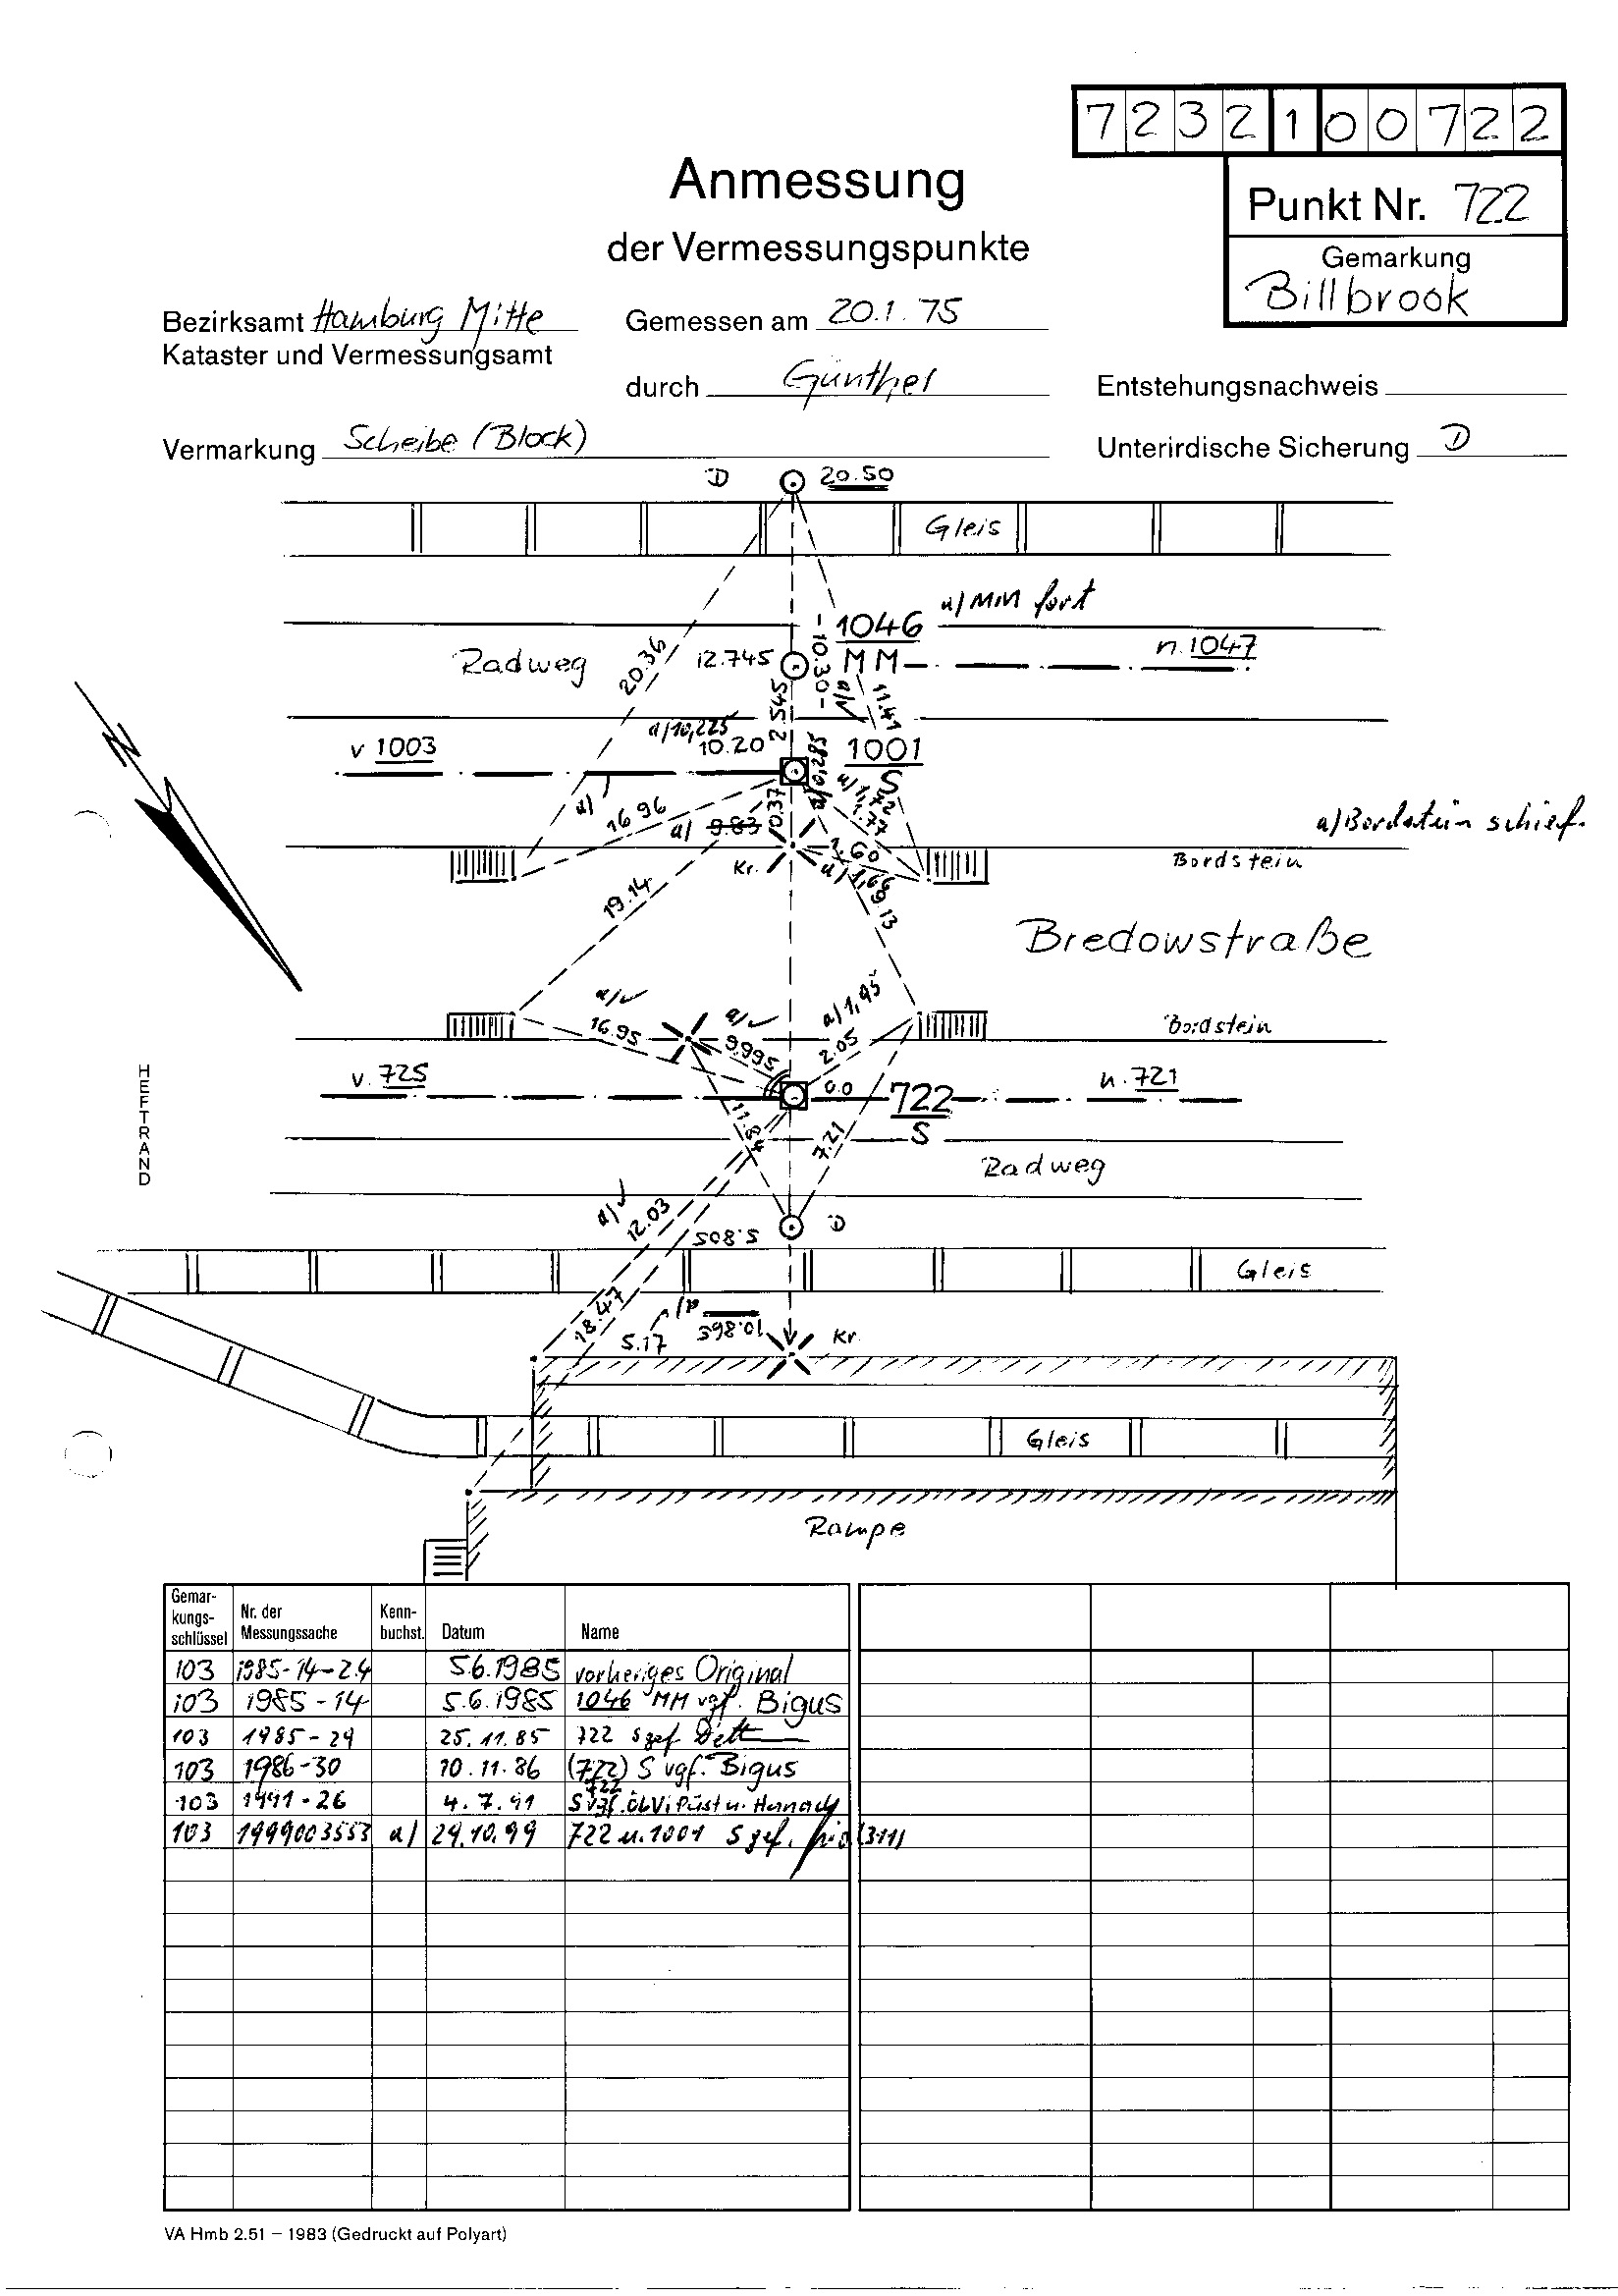 7232100722
Anmessung
der Vermessungspunkte
Punkt Nr. 722
Gemarkung
Billbrook
Bezirksamt Hamburg Mitte
Kataster und Vermessungsamt
Gemessen am 20.1.75
durch Günther
Entstehungsnachweis
Vermarkung Scheibe (Block)
Unterirdische Sicherung D
D 20.50
Gleis
a/ MM fort
1046
Radweg 20.36 12.745 MM n. 1047
-10.30- a/✓ 11.41
2.545
a/10,225
v 1003 10.20 1001
S
a/0,285
a/ 16.96 a/ 9.83 0.37 a/1,72 1.77
a/Bordstein schief.
Kr. 1.60 a/1,66 Bordstein
19.14 9.13
Bredowstraße
a/✓ a/✓ a/1,95
16.95 9.995 2.05 Bordstein
v. 725 0.0 722 n. 721
S
11.84 7.21
Radweg
HEFTRAND
a/✓ 12.03
5.805 D
Gleis
18.47 5.17 a/ 10.865 Kr.
Gleis
Rampe
Gemar-
kungs-
schlüssel Nr. der
Messungssache Kenn-
buchst. Datum Name
103 1985-14-24 5.6.1985 vorheriges Original
103 1985-14 5.6.1985 1046 MM vgf. Bigus
103 1985-29 25.11.85 722 S gef.
103 1986-30 10.11.86 (722) S vgf. Bigus
103 1991-26 4.7.91 722 S vgf. ÖbVi Püst u.
103 1999003553 a/ 29.10.99 722 u. 1001 S gef. (311)
VA Hmb 2.51 – 1983 (Gedruckt auf Polyart)